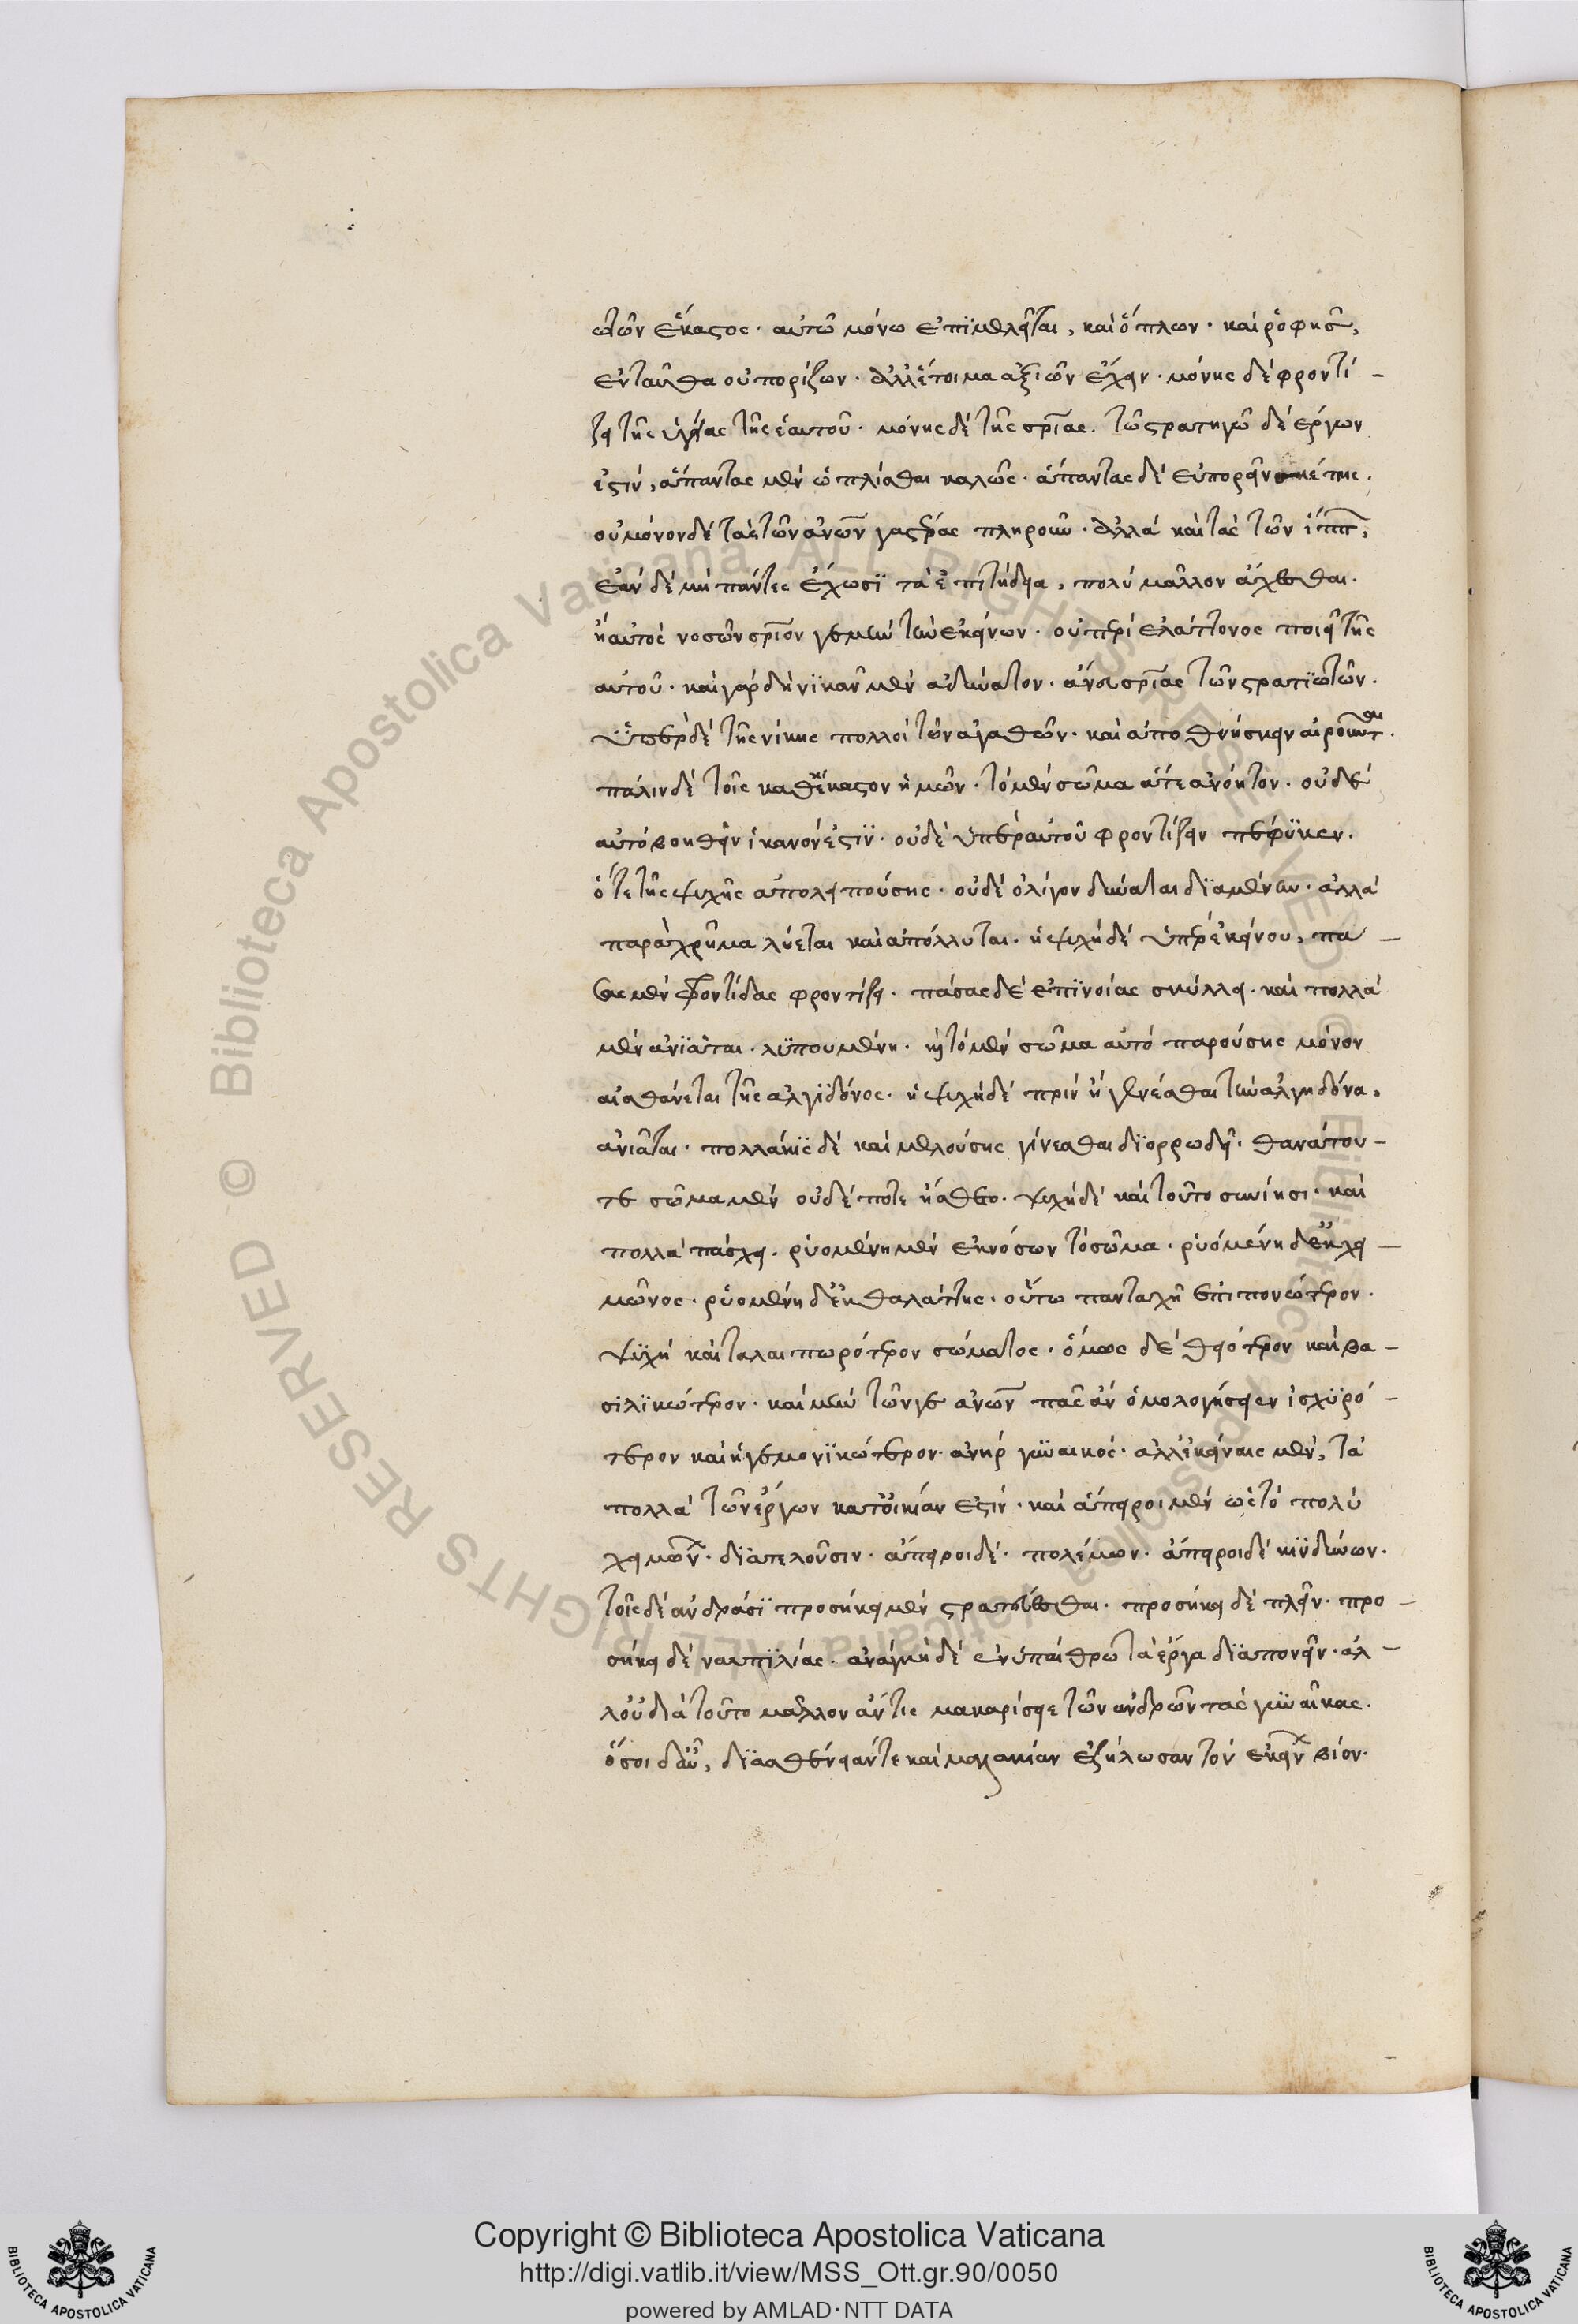 ωτῶν ἕκαστος· αὐτῶ μόνω ἐπϊμελεῖται, καὶ ὅπλων· καὶ ῥοφησ,
ἐνταῦθα οὐ πορίζων· ἀλλ' ἕτοιμα ἀξιῶν ἔχειν· μόνης δὲ φροντί–
ζει τῆς ὑγείας τῆς ἑαυτοῦ· μόνης δὲ τῆς σρΐας. τῶ στρατηγῶ δὲ ἔργων
ἐστὶν, ἅπαντας μὲν ὡπλίσθαι καλῶς· ἅπαντας δὲ εὐπορεῖν σκέπης.
οὐ μόνον δὲ τὰς τῶν ἀνων γαστέρας πληροῦν· ἀλλὰ καὶ τὰς τῶν ἵππ,
ἐὰν δὲ μὴ πάντες ἔχωσϊ τὰ ἐπιτήδεια, πολὺ μᾶλλον ἄχθεσθαι.
ἢ αὐτὸς νοσῶν σρΐον γε μὴν τὴν ἐκείνων· οὐ περὶ ἐλάττονος ποιεῖ τῆς
αὐτοῦ· καὶ γὰρ δὴ νϊκᾶν μὲν ἀδύνατον· ἄνευ σρΐας τῶν στρατϊωτῶν.
ὑπὲρ δὲ τῆς νίκης πολλοὶ τῶν ἀγαθῶν· καὶ ἀποθνήσκειν αἱροῦντ.
πάλιν δὲ τοῖς καθ' ἕκαστον ἡμῶν· τὸ μὲν σῶμα ἅτε ἀνόητον· οὐδὲ
αὐτὸ βοηθεῖν ἱκανόν ἐστϊν· οὐδὲ ὑπὲρ αὐτοῦ φροντίζειν πεφϋκεν.
ὅτε τῆς ψυχῆς ἀπολειπούσης· οὐδὲ ὀλίγον δύναται δϊαμένειν· ἀλλὰ
παρὰχρῆμα λύεται καὶ ἀπόλλυται· ἡ ψυχὴ δὲ ὑπὲρ ἐκείνου, πά–
σας μὲν φροντίδας φροντίζει· πάσας δὲ ἐπϊνοίας σκύλλει· καὶ πολλὰ
μὲν ἀνϊᾶται· λϋπουμένη· καὶ τὸ μὲν σῶμα αὐτὸ παρούσης μόνον
αἰσθάνεται τῆς ἀλγϊδόνος· ἡ ψυχὴ δὲ πρὶν ἢ γενέσθαι τὴν ἀλγηδόνα,
ἀνιᾶται· πολλάκϊς δὲ καὶ μελούσης γίνεσθαι δϊορρωδεῖ· θανάτου–
τε σῶμα μὲν οὐδέποτε ᾔσθετο· ψυχὴ δὲ καὶ τοῦτο συνίησι· καὶ
πολλὰ πάσχει· ῥυομένη μὲν ἐκ νόσων τὸ σῶμα· ῥυομένη δ' ἐκ χει–
μῶνος· ῥυομένη δ' ἐκ θαλάττης· οὕτω πανταχῆ ἐπιπονώτερον·
ψϋχὴ καὶ ταλαιπωρότερον σώματος· ὅμως δὲ θειότερον καὶ βα–
σιλϊκώτερον· καὶ μὴν τῶν γε ἀνων πᾶς ἂν ὁμολογήσειεν ἰσχϋρό–
τερον καὶ ἡγεμονϊκώτερον· ἀνὴρ γϋναικός· ἀλλ' ἐκείναις μὲν, τὰ
πολλὰ τῶν ἔργων κατ' οἰκίαν ἐστίν· καὶ ἄπειροι μὲν ὡς τὸ πολὺ
χειμών· δϊατελοῦσιν· ἄπειροι δὲ· πολέμων· ἄπειροι δὲ κϊνδύνων.
τοῖς δὲ ἀνδράσϊ προσήκει μὲν στρατεύεσθαι· προσήκει δὲ πλεῖν· προ–
σήκει δὲ ναυτϊλίας· ἀνάγκη δὲ ἐν ὑπαίθρω τὰ ἔργα δϊαπονεῖν· ἀλ–
λ' οὐ διὰ τοῦτο μᾶλλον ἄν τις μακαρίσειε τῶν ἀνδρῶν τὰς γϋναῖκας.
ὅσοι δ' αὖ, δϊ' ἀσθένειάν τε καὶ μαλακίαν ἐζήλωσαν τὸν ἐκείν βίον·
Copyright © Biblioteca Apostolica Vaticana
http://digi.vatlib.it/view/MSS_Ott.gr.90/0050
powered by AMLAD·NTT DATA